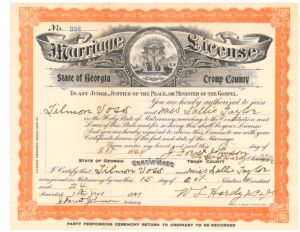 No. 338
Marriage License
State of Georgia Troup County
TO ANY JUDGE, JUSTICE OF THE PEACE, OR MINISTER OF THE GOSPEL.
You are hereby authorized to join
Tilmon Voss and Miss Sallie Taylor
in the Holy State of Matrimony according to the Constitution and
Laws of this State and for so doing this shall be your License.
And you are hereby required to return this License to me with your
Certificate hereon of the fact and date of the Marriage.
STATE OF GEORGIA CERTIFICATE TROUP COUNTY
I Certify that Tilmon Voss and Miss Sallie Taylor
were joined in Matrimony by me this 15 day of
Recorded
PARTY PERFORMING CEREMONY RETURN TO ORDINARY TO BE RECORDED